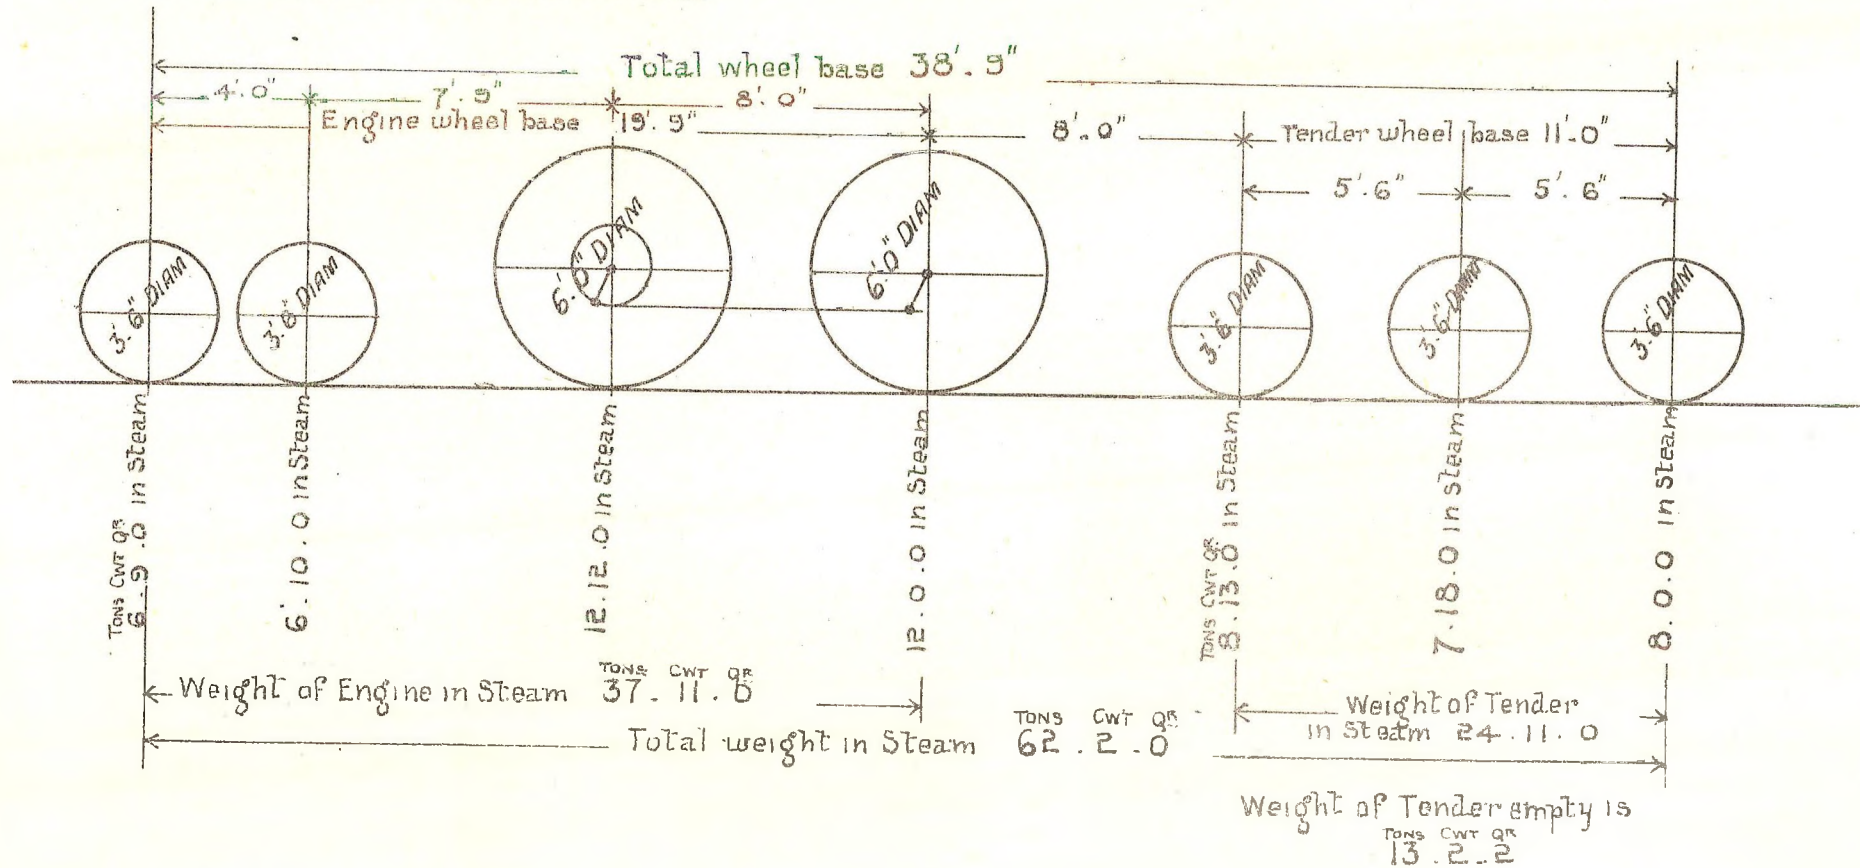 Total wheel base 38'. 9"
4'. 0" 7'. 9" 8'. 0"
Engine wheel base 19'. 9" 8'. 0" Tender wheel base 11'.0"
5'. 6" 5'. 6"
3'.6" DIAM
3'.6" DIAM
6'.0" DIAM
6'.0" DIAM
3'.6" DIAM
3'.6" DIAM
3'.6" DIAM
TONS CWT QR
6 . 9 . 0 in Steam
6 . 10 . 0 in Steam
12.12.0 in Steam
12 . 0 . 0 in Steam
TONS CWT QR
8 . 13 . 0 in Steam
7 . 18 . 0 in Steam
8 . 0 . 0 in Steam
TONS CWT QR
Weight of Engine in Steam 37. 11. 0
Weight of Tender
in Steam 24 . 11 . 0
TONS CWT QR
Total weight in Steam 62 . 2 . 0
Weight of Tender empty is
TONS CWT QR
13 . 2 . 2